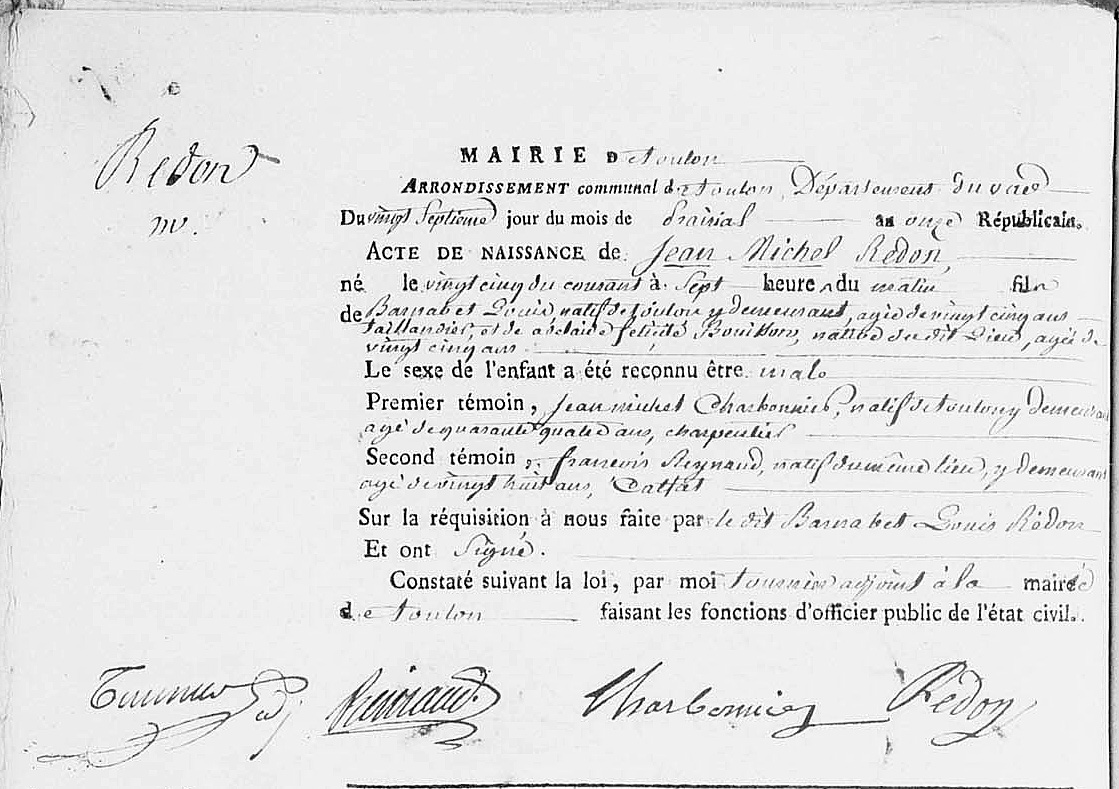 Redon
MAIRIE De toulon
ARRONDISSEMENT communal de toulon, Département du var
Du vingt Septieme jour du mois de prairial an onze Républicain.
ACTE DE NAISSANCE de Jean Michel Redon,
né le vingt cinq du courant à Sept heures du matin fils
de Barnabet Louis natif de toulon y demeurant, agé de vingt cinq ans
taillandier, et de félicité, native du dit Lieu, agée de
vingt cinq ans
Le sexe de l'enfant a été reconnu être male
Premier témoin, Jean michel Charbonnier, natif de toulon y demeurant
agé de quarante quatre ans, charpentier
Second témoin, françois Reynaud, natif du même lieu, y demeurant
agé de vingt huit ans, Calfat
Sur la réquisition à nous faite par le dit Barnabet Louis Rédon
Et ont Signé.
Constaté suivant la loi, par moi tournier adjoint à la mairie
de toulon faisant les fonctions d'officier public de l'état civil.
Tournier adj Reinaud Charbonnier Rédon